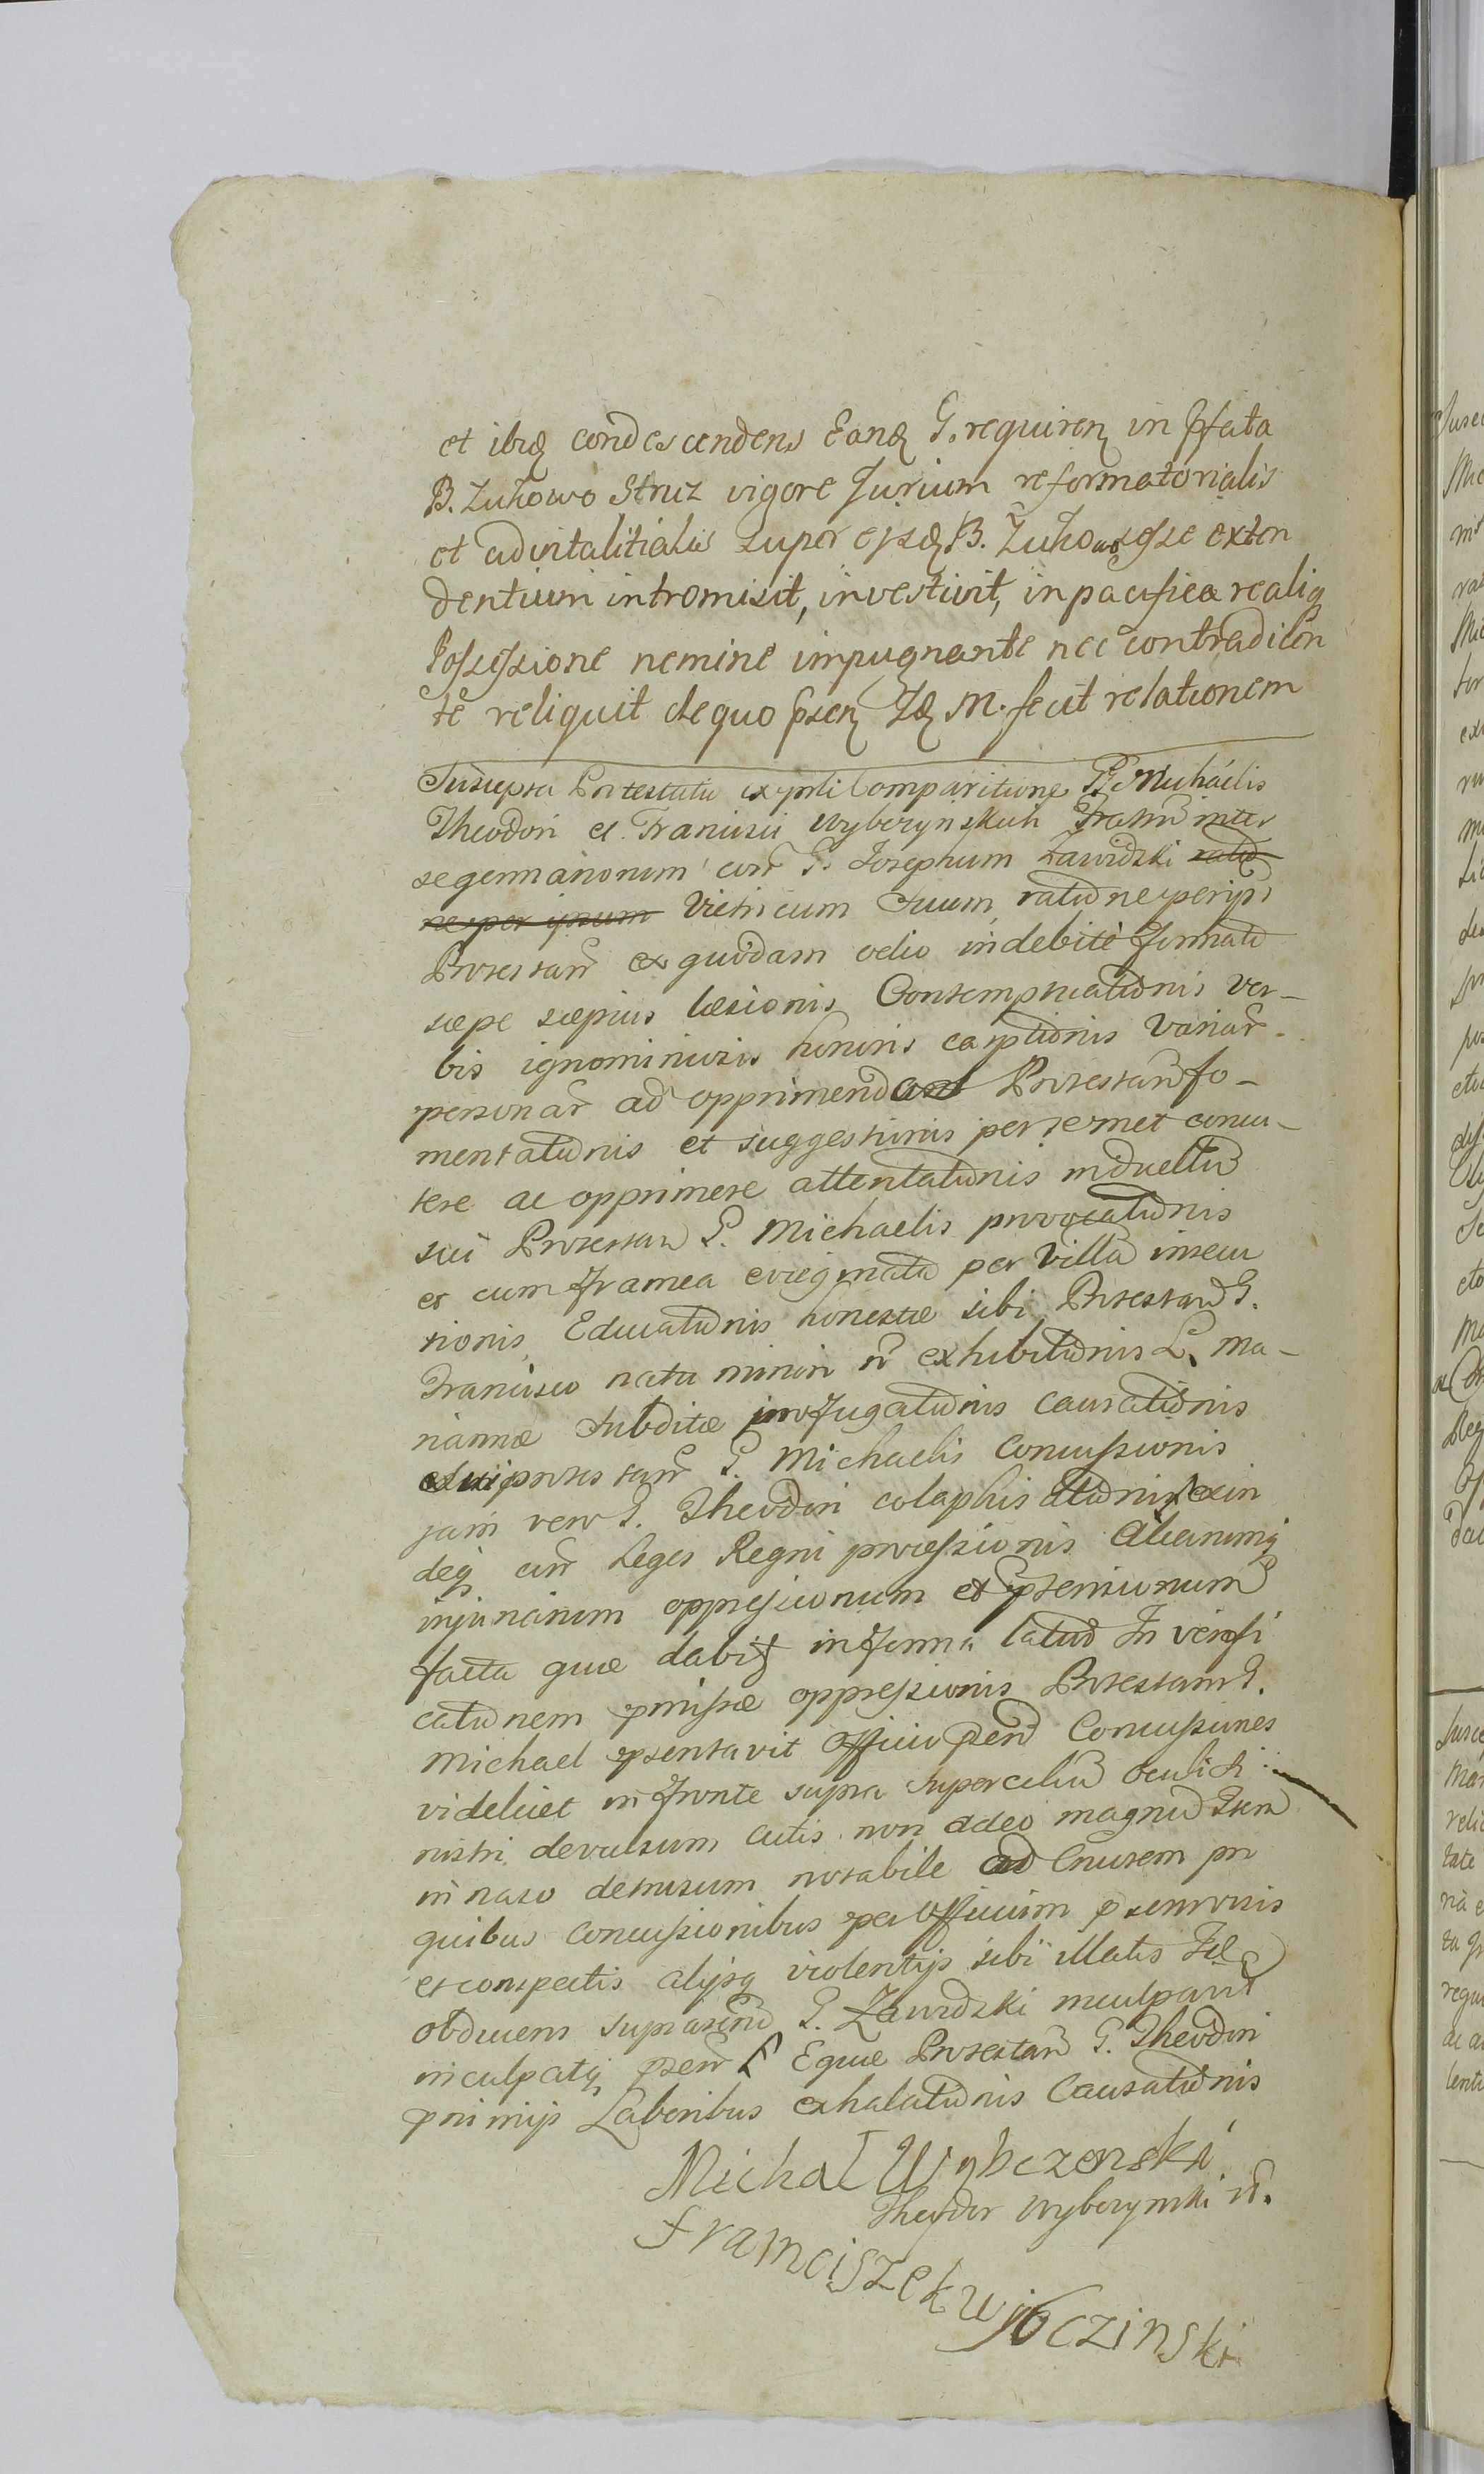 et ibiq condescendens Eanq G. requiren in pfata
B. Zuhowo Struz vigore Jurium reformatorialis
et advitalitialis super ejsdq B. Zuhowo sese exten
dentium intromisit, investivit, in pacifica realiq
Possessione nemine impugnante nec contradicen
te reliquit de quo psen Idq M. fecit relationem
Suscepta Protestatio ex pnti Comparitione GG Michaelis
Theodori et Francisci Wyberynskich Fratrum inter
se germanorum con G. Josephum Zawidzki ratio
ne per ipsum Vitricum Suum ratione per ips
Protestan ex quodam odio indebite formato
sæpe sæpius læsionis Contemptuationis ver-
bis ignominiosis honoris captionis Variar
personar ad opprimendas Protestan fo-
mentationis et suggestionis per semet concu-
tere ac opprimere attentationis in duellum
sui Protestan G. Michaelis provocationis
et cum framea evaginata per Villam insecu
tionis, Educationis honestæ sibi Protestan G.
Francisco natu minori n exhibitionis L. Ma-
riannæ Subditæ profugationis causationis
sui protestan G. Michaelis Concussionis
jam vero G. Theodori colaphisationis exin
deq con Leges Regni processionis Aliarumq
injuriarum oppressionum et pteniionum
facta quæ dabit in forma latio In verifi
cationem pmissæ oppressionis Protestan G.
Michael psentavit Officio psen Concussiones
videlicet in fronte supra supercilium oculi si
nistri devulsum cutis non adeo magnum Item
in naso detrusum notabile ad Cruorem pro
quibus Concussionibus per Officium psen visis
et conspectis alijsq violentijs sibi illatis Idq
obducens suprascrip G. Zawidzki inculpavit
inculpatq psen Eque Protestan G. Theodori
pnimijs Laboribus exhalationis Causationis
Michal Wybczenski
Theodor Wyberynski m.
Franciszek wybczinski